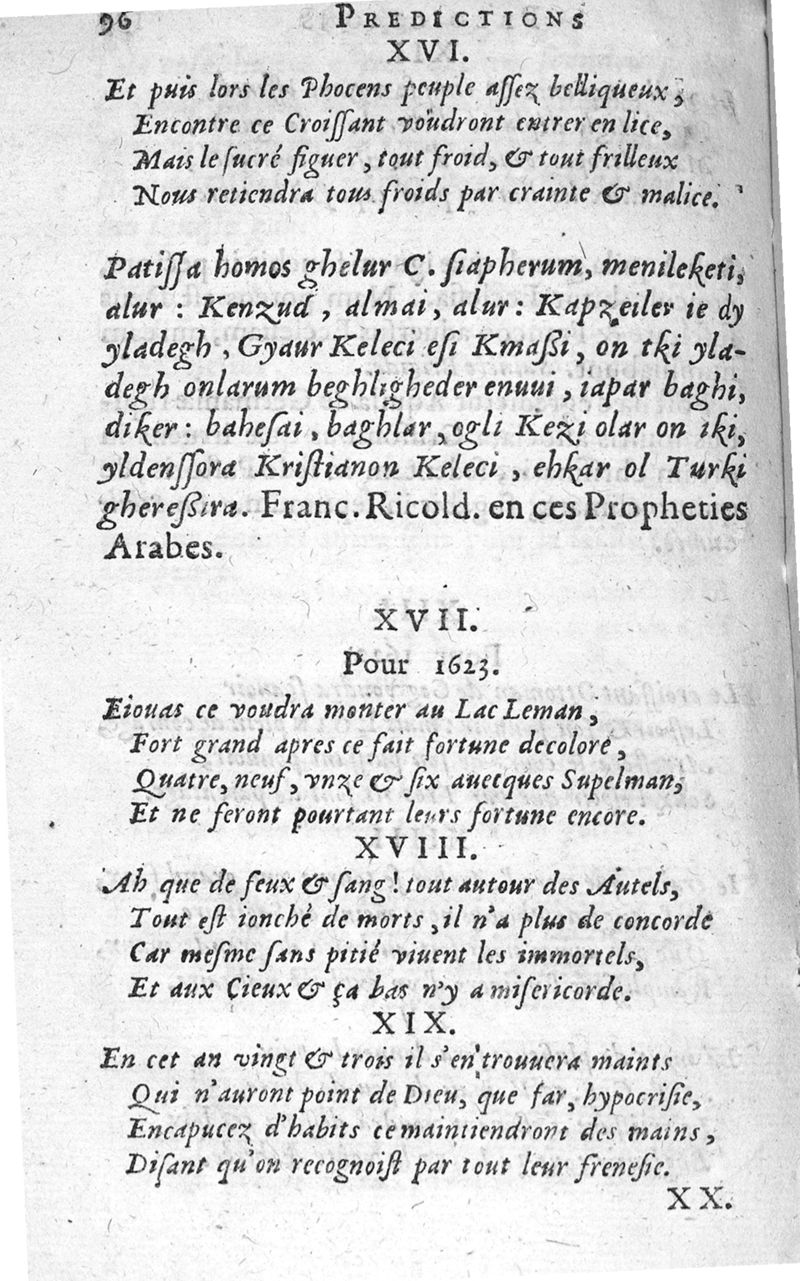 96 PREDICTIONS
XVI.
Et puis lors les Phocens peuple aſſez belliqueux,
Encontre ce Croiſſant voudront entrer en lice,
Mais le ſucré figuer, tout froid, & tout frilleux
Nous retiendra tous froids par crainte & malice.
Patiſſa homos ghelur C. ſiapherum, menileketi,
alur : Kenzud, almai, alur : Kapzeiler ie dy
yladegh, Gyaur Keleci eſi Kmaßi, on tki yla-
degh onlarum beghligheder enuui, iapar baghi,
diker : baheſai, baghlar, ogli Kezi olar on iki,
yldenſſora Kriſtianon Keleci, ehkar ol Turki
ghereßira. Franc. Ricold. en ces Propheties
Arabes.
XVII.
Pour 1623.
Eiouas ce voudra monter au Lac Leman,
Fort grand apres ce fait fortune decoloré,
Quatre, neuf, vnze & ſix auecques Supelman,
Et ne feront pourtant leurs fortune encore.
XVIII.
Ah que de feux & ſang ! tout autour des Autels,
Tout eſt ionché de morts, il n'a plus de concorde
Car meſme ſans pitié viuent les immortels,
Et aux Cieux & ça bas n'y a miſericorde.
XIX.
En cet an vingt & trois il s'en trouuera maints
Qui n'auront point de Dieu, que far, hypocriſie,
Encapucez d'habits ce maintiendront des mains,
Diſant qu'on recognoiſt par tout leur freneſie.
XX.